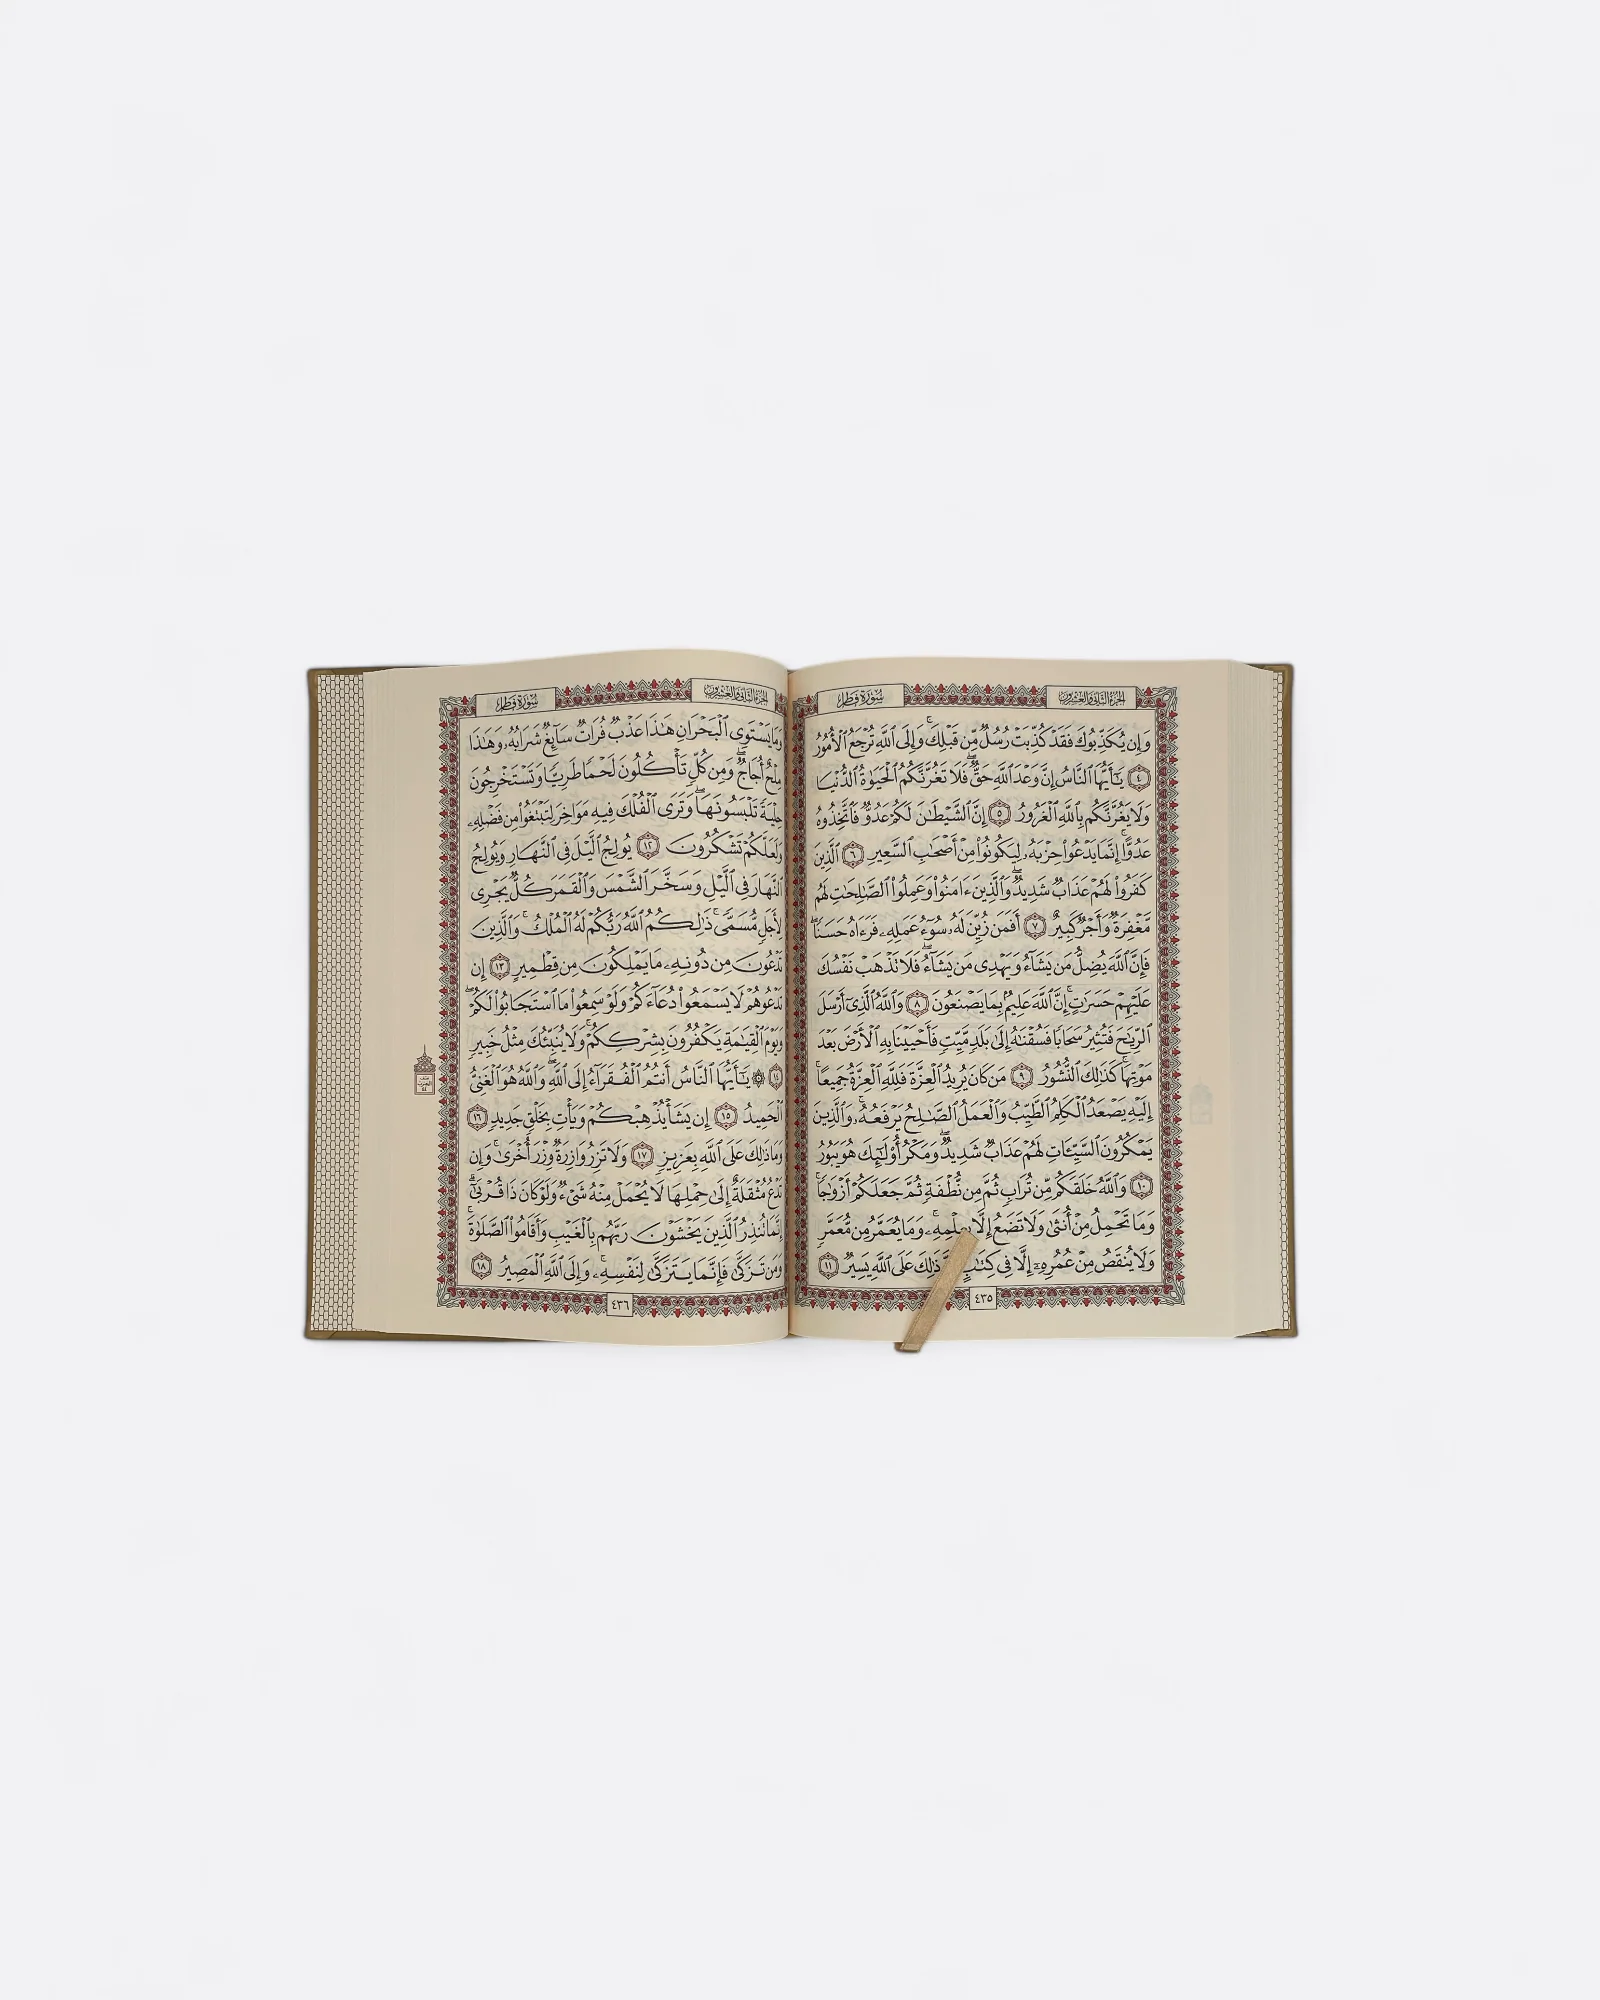 الجزء الثاني والعشرون
سورة فاطر
وَإِن يُكَذِّبُوكَ فَقَدْ كُذِّبَتْ رُسُلٌ مِّن قَبْلِكَ ۚ وَإِلَى ٱللَّهِ تُرْجَعُ ٱلْأُمُورُ
٤ يَٰٓأَيُّهَا ٱلنَّاسُ إِنَّ وَعْدَ ٱللَّهِ حَقٌّ ۖ فَلَا تَغُرَّنَّكُمُ ٱلْحَيَوٰةُ ٱلدُّنْيَا
وَلَا يَغُرَّنَّكُم بِٱللَّهِ ٱلْغَرُورُ ٥ إِنَّ ٱلشَّيْطَٰنَ لَكُمْ عَدُوٌّ فَٱتَّخِذُوهُ
عَدُوًّا ۚ إِنَّمَا يَدْعُوا۟ حِزْبَهُۥ لِيَكُونُوا۟ مِنْ أَصْحَٰبِ ٱلسَّعِيرِ ٦ ٱلَّذِينَ
كَفَرُوا۟ لَهُمْ عَذَابٌ شَدِيدٌ ۖ وَٱلَّذِينَ ءَامَنُوا۟ وَعَمِلُوا۟ ٱلصَّٰلِحَٰتِ لَهُم
مَّغْفِرَةٌ وَأَجْرٌ كَبِيرٌ ٧ أَفَمَن زُيِّنَ لَهُۥ سُوٓءُ عَمَلِهِۦ فَرَءَاهُ حَسَنًا ۖ
فَإِنَّ ٱللَّهَ يُضِلُّ مَن يَشَآءُ وَيَهْدِى مَن يَشَآءُ ۖ فَلَا تَذْهَبْ نَفْسُكَ
عَلَيْهِمْ حَسَرَٰتٍ ۚ إِنَّ ٱللَّهَ عَلِيمٌۢ بِمَا يَصْنَعُونَ ٨ وَٱللَّهُ ٱلَّذِىٓ أَرْسَلَ
ٱلرِّيَٰحَ فَتُثِيرُ سَحَابًا فَسُقْنَٰهُ إِلَىٰ بَلَدٍ مَّيِّتٍ فَأَحْيَيْنَا بِهِ ٱلْأَرْضَ بَعْدَ
مَوْتِهَا ۚ كَذَٰلِكَ ٱلنُّشُورُ ٩ مَن كَانَ يُرِيدُ ٱلْعِزَّةَ فَلِلَّهِ ٱلْعِزَّةُ جَمِيعًا ۚ
إِلَيْهِ يَصْعَدُ ٱلْكَلِمُ ٱلطَّيِّبُ وَٱلْعَمَلُ ٱلصَّٰلِحُ يَرْفَعُهُۥ ۚ وَٱلَّذِينَ
يَمْكُرُونَ ٱلسَّيِّـَٔاتِ لَهُمْ عَذَابٌ شَدِيدٌ ۖ وَمَكْرُ أُو۟لَٰٓئِكَ هُوَ يَبُورُ
١٠ وَٱللَّهُ خَلَقَكُم مِّن تُرَابٍ ثُمَّ مِن نُّطْفَةٍ ثُمَّ جَعَلَكُمْ أَزْوَٰجًا ۚ
وَمَا تَحْمِلُ مِنْ أُنثَىٰ وَلَا تَضَعُ إِلَّا بِعِلْمِهِۦ ۚ وَمَا يُعَمَّرُ مِن مُّعَمَّرٍ
وَلَا يُنقَصُ مِنْ عُمُرِهِۦٓ إِلَّا فِى كِتَٰبٍ ۚ إِنَّ ذَٰلِكَ عَلَى ٱللَّهِ يَسِيرٌ ١١
٤٣٥
الجزء الثاني والعشرون
سورة فاطر
وَمَا يَسْتَوِى ٱلْبَحْرَانِ هَٰذَا عَذْبٌ فُرَاتٌ سَآئِغٌ شَرَابُهُۥ وَهَٰذَا
مِلْحٌ أُجَاجٌ ۖ وَمِن كُلٍّ تَأْكُلُونَ لَحْمًا طَرِيًّا وَتَسْتَخْرِجُونَ
حِلْيَةً تَلْبَسُونَهَا ۖ وَتَرَى ٱلْفُلْكَ فِيهِ مَوَاخِرَ لِتَبْتَغُوا۟ مِن فَضْلِهِۦ
وَلَعَلَّكُمْ تَشْكُرُونَ ١٢ يُولِجُ ٱلَّيْلَ فِى ٱلنَّهَارِ وَيُولِجُ
ٱلنَّهَارَ فِى ٱلَّيْلِ وَسَخَّرَ ٱلشَّمْسَ وَٱلْقَمَرَ كُلٌّ يَجْرِى
لِأَجَلٍ مُّسَمًّى ۚ ذَٰلِكُمُ ٱللَّهُ رَبُّكُمْ لَهُ ٱلْمُلْكُ ۚ وَٱلَّذِينَ
تَدْعُونَ مِن دُونِهِۦ مَا يَمْلِكُونَ مِن قِطْمِيرٍ ١٣ إِن
تَدْعُوهُمْ لَا يَسْمَعُوا۟ دُعَآءَكُمْ وَلَوْ سَمِعُوا۟ مَا ٱسْتَجَابُوا۟ لَكُمْ ۖ
وَيَوْمَ ٱلْقِيَٰمَةِ يَكْفُرُونَ بِشِرْكِكُمْ ۚ وَلَا يُنَبِّئُكَ مِثْلُ خَبِيرٍ
١٤ ۞ يَٰٓأَيُّهَا ٱلنَّاسُ أَنتُمُ ٱلْفُقَرَآءُ إِلَى ٱللَّهِ ۖ وَٱللَّهُ هُوَ ٱلْغَنِىُّ
ٱلْحَمِيدُ ١٥ إِن يَشَأْ يُذْهِبْكُمْ وَيَأْتِ بِخَلْقٍ جَدِيدٍ ١٦
وَمَا ذَٰلِكَ عَلَى ٱللَّهِ بِعَزِيزٍ ١٧ وَلَا تَزِرُ وَازِرَةٌ وِزْرَ أُخْرَىٰ ۚ وَإِن
تَدْعُ مُثْقَلَةٌ إِلَىٰ حِمْلِهَا لَا يُحْمَلْ مِنْهُ شَىْءٌ وَلَوْ كَانَ ذَا قُرْبَىٰٓ ۗ
إِنَّمَا تُنذِرُ ٱلَّذِينَ يَخْشَوْنَ رَبَّهُم بِٱلْغَيْبِ وَأَقَامُوا۟ ٱلصَّلَوٰةَ ۚ
وَمَن تَزَكَّىٰ فَإِنَّمَا يَتَزَكَّىٰ لِنَفْسِهِۦ ۚ وَإِلَى ٱللَّهِ ٱلْمَصِيرُ ١٨
٤٣٦